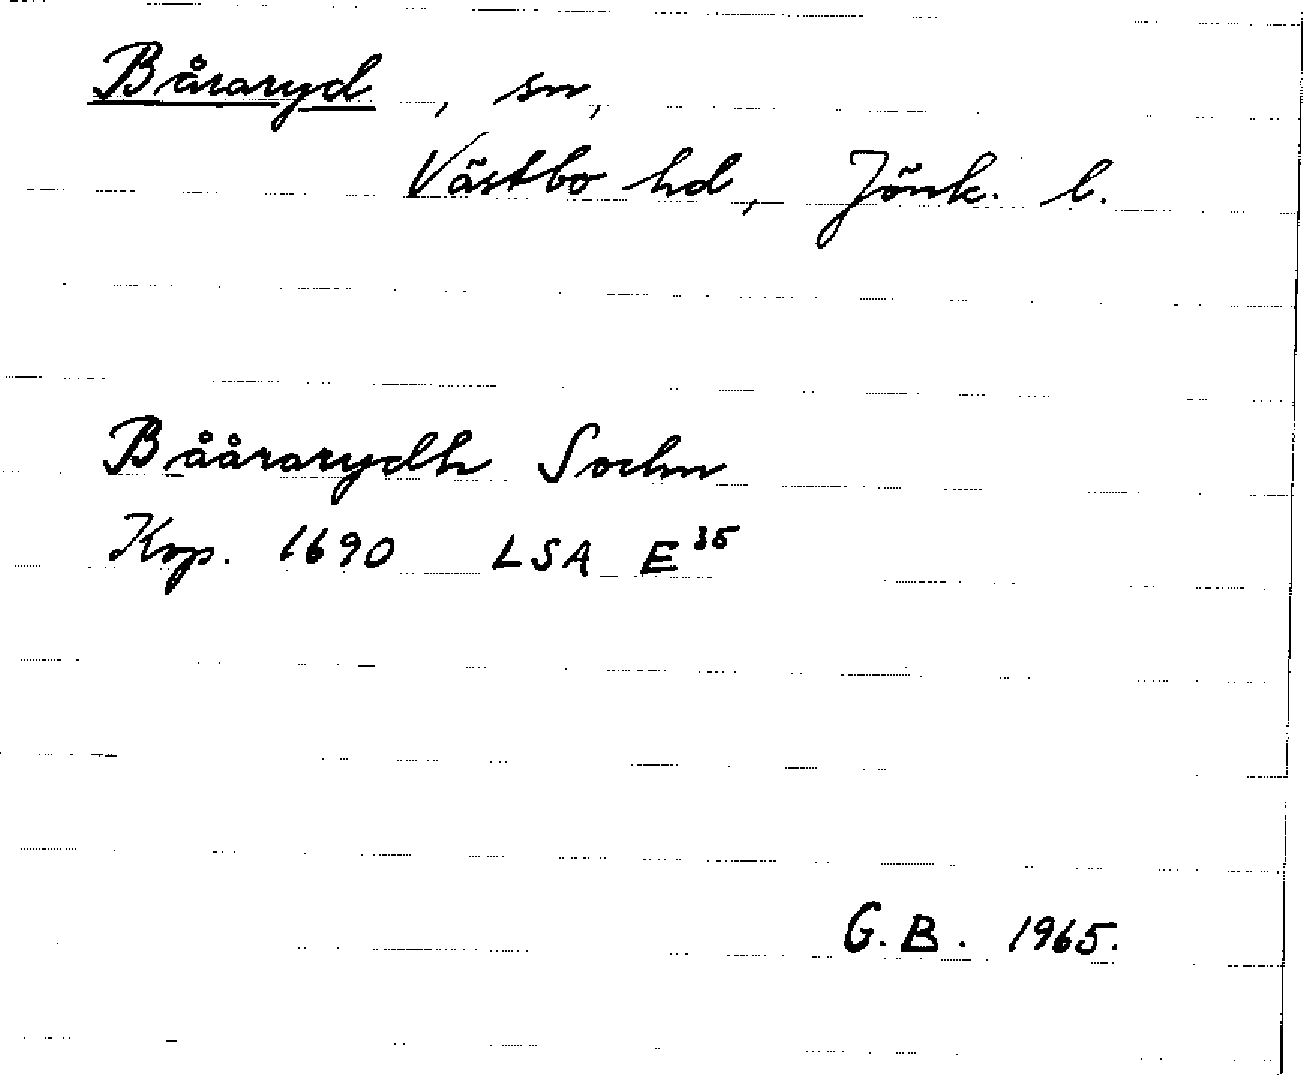 Båraryd, sn,
Västbo hd, Jönk. l.
Båårarydh Sochn
Kop. 1690 LSA E³⁵
G.B. 1965.